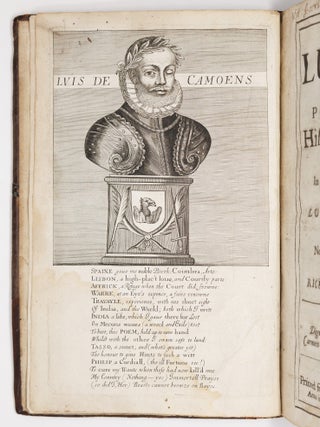 LVIS DE CAMOENS
SPAINE gave me noble Birth: Coimbra, Arts:
LISBON, a high-plac't loue, and Courtly parts:
AFFRICK, a Refuge when the Court did frowne:
WARRE, at an Eye's expence, a faire renowne:
TRAVAYLE, experience, with noe short sight
Of India, and the World; both which I write
INDIA a life, which I gave there for Lost
On Mecons waues (a wreck and Exile) tost
To boot, this POEM, held up in one hand
Whilst with the other I swam safe to land:
TASSO, a sonnet; and (what's greater yet)
The honour to giue Hints to such a witt
PHILIP a Cordiall, (the ill Fortune see!)
To cure my Wants when those had new kill'd mee
My Country (Nothing—yes) Immortall Prayse
(so did I, Her) Beasts cannot browze on Bayes.
LU
P
His
In
LO
No